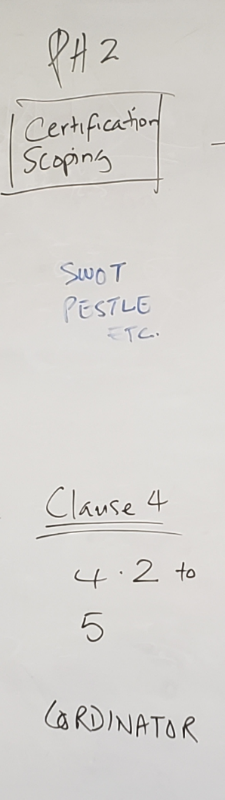 PH 2
Certification
Scoping
SWOT
PESTLE
ETC.
Clause 4
4.2 to
5
CORDINATOR